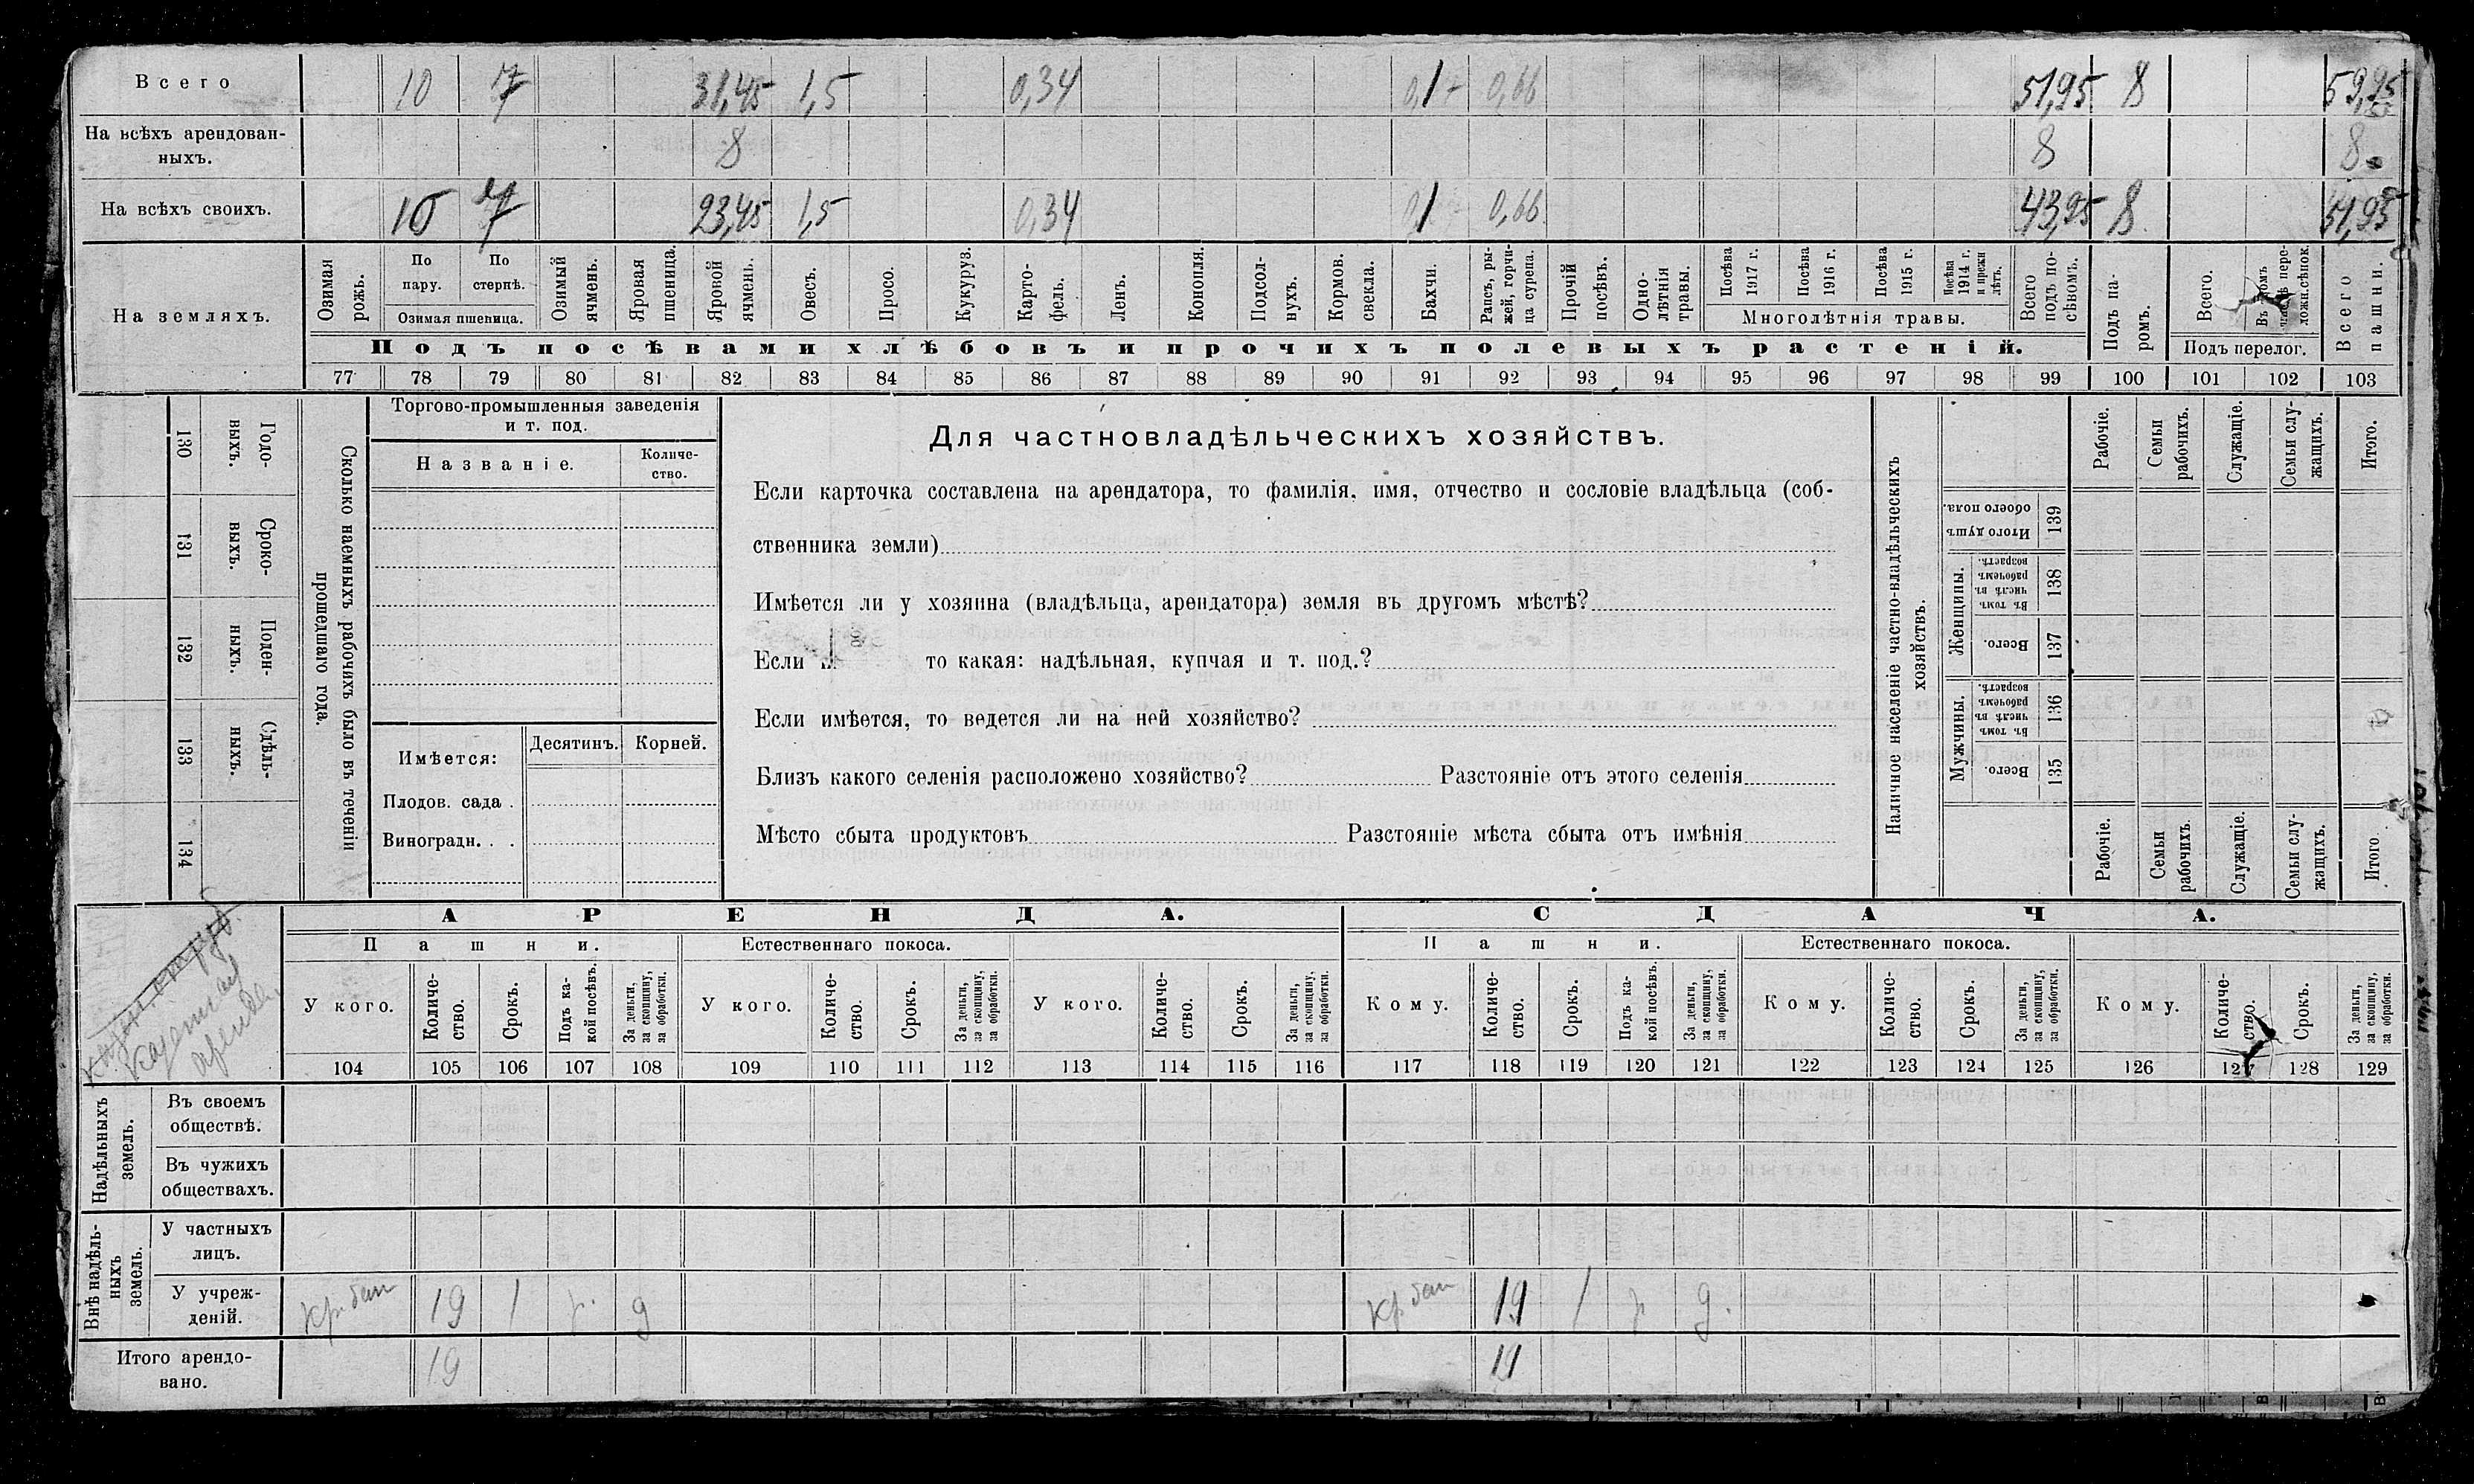 Всего 10 7 31,45 1,5 0,34 0,1 0,66 51,95 8 59,95
На всѣхъ арендован-
ныхъ. 8 8 8
На всѣхъ своихъ. 10 7 23,45 1,5 0,34 0,1 0,66 43,95 8 51,95
На земляхъ.
Озимая рожь.
По пару.
По стернѣ.
Озимая пшеница.
Озимый ячмень.
Яровая пшеница.
Яровой ячмень.
Овесъ.
Просо.
Кукуруз.
Карто-
фель.
Ленъ.
Конопля.
Подсол-
нухъ.
Кормов. свекла.
Бахчи.
Рапсъ, ры-
жей, горчи-
ца сурепа.
Прочій посѣвъ.
Одно-
лѣтнія травы.
Посѣва 1917 г.
Посѣва 1916 г.
Посѣва 1915 г.
Посѣва 1914 г. и прежн лѣтъ.
Многолѣтнія травы.
Всего подъ по-
сѣвомъ.
Подъ па-
ромъ.
Всего.
Въ томъ числѣ пере-
ложн.сѣнок.
Подъ перелог.
Всего пашни.
Подъ посѣвами хлѣбовъ и прочихъ полевыхъ растеній.
77 78 79 80 81 82 83 84 85 86 87 88 89 90 91 92 93 94 95 96 97 98 99 100 101 102 103
130 Годо-
выхъ.
131 Сроко-
выхъ.
132 Поден-
ныхъ.
133 Сдѣль-
ныхъ.
134
Сколько наемныхъ рабочихъ было въ теченіи
прошедшаго года.
Торгово-промышленныя заведенія
и т. под.
Названіе.
Количе-
ство.
Имѣется:
Десятинъ.
Корней.
Плодов. сада .
Виноградн. . .
Для частновладѣльческихъ хозяйствъ.
Если карточка составлена на арендатора, то фамилія, имя, отчество и сословіе владѣльца (соб-
ственника земли)
Имѣется ли у хозяина (владѣльца, арендатора) земля въ другомъ мѣстѣ?
Если то какая: надѣльная, купчая и т. под.?
Если имѣется, то ведется ли на ней хозяйство?
Близъ какого селенія расположено хозяйство? Разстояніе отъ этого селенія
Мѣсто сбыта продуктовъ Разстояніе мѣста сбыта отъ имѣнія
Наличное населеніе частно-владѣльческихъ
хозяйствъ.
Рабочіе.
Семьи рабочихъ.
Служащіе.
Семьи слу-
жащихъ.
Итого.
Итого душъ обоего пола. 139
Женщины.
Въ томъ числѣ въ рабочемъ возрастѣ. 138
Всего. 137
Мужчины.
Въ томъ числѣ въ рабочемъ возрастѣ. 136
Всего. 135
Рабочіе.
Семьи рабочихъ.
Служащіе.
Семьи слу-
жащихъ.
Итого
казенная
аренда.
АРЕНДА.
СДАЧА.
Пашни.
Естественнаго покоса.
Пашни.
Естественнаго покоса.
У кого.
Количе-
ство.
Срокъ.
Подъ ка-
кой посѣвъ.
За деньги, за скопщину, за обработки.
У кого.
Количе-
ство.
Срокъ.
За деньги, за скопщину, за обработки.
У кого.
Количе-
ство.
Срокъ.
За деньги, за скопщину, за обработки.
Кому.
Количе-
ство.
Срокъ.
Подъ ка-
кой посѣвъ.
За деньги, за скопщину, за обработки.
Кому.
Количе-
ство.
Срокъ.
За деньги, за скопщину, за обработки.
Кому.
Количе-
ство.
Срокъ.
За деньги, за скопщину, за обработки.
104 105 106 107 108 109 110 111 112 113 114 115 116 117 118 119 120 121 122 123 124 125 126 127 128 129
Надѣльныхъ земель.
Въ своемъ
обществѣ.
Въ чужихъ
обществахъ.
Внѣ надѣль-
ныхъ земель.
У частныхъ
лицъ.
У учреж-
деній.
Кр. бан 19 1 г. д Кр бан 19 1 г д.
Итого арендо-
вано. 19 19